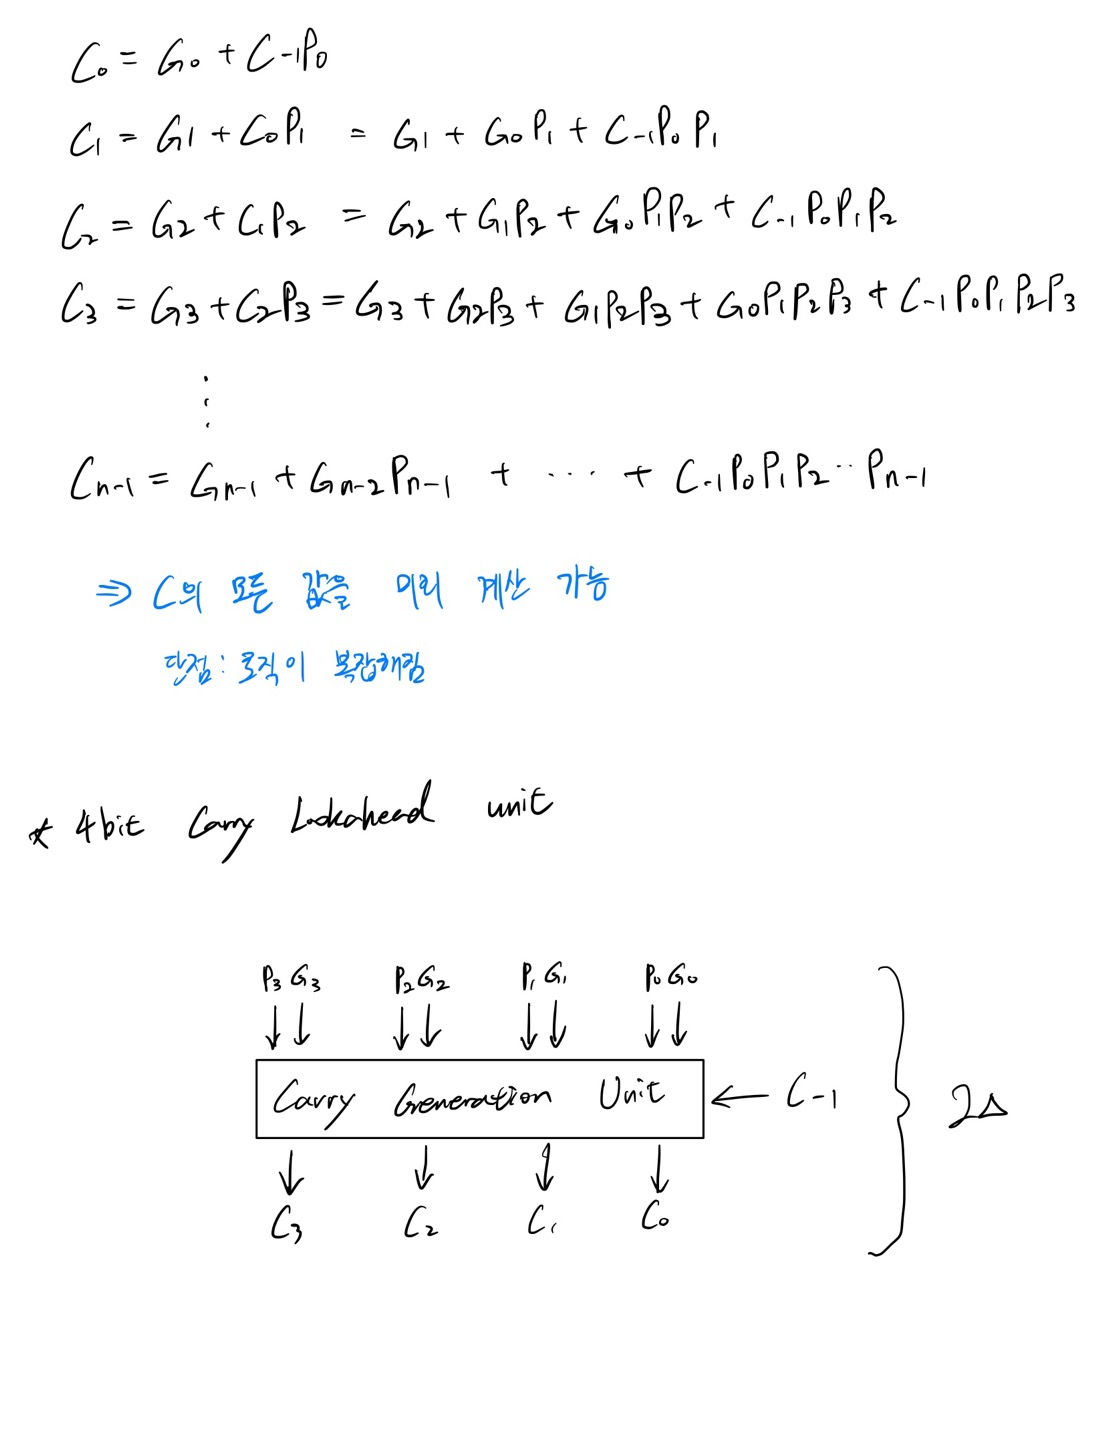 C₀ = G₀ + C₋₁P₀
C₁ = G1 + C₀P₁ = G₁ + G₀P₁ + C₋₁P₀P₁
C₂ = G2 + C₁P₂ = G₂ + G₁P₂ + G₀P₁P₂ + C₋₁P₀P₁P₂
C₃ = G₃ + C₂P₃ = G₃ + G₂P₃ + G₁P₂P₃ + G₀P₁P₂P₃ + C₋₁P₀P₁P₂P₃
⋮
Cₙ₋₁ = Gₙ₋₁ + Gₙ₋₂Pₙ₋₁ + ··· + C₋₁P₀P₁P₂··Pₙ₋₁
⇒ C의 모든 값을 미리 계산 가능
단점: 로직이 복잡해짐
* 4bit Carry Lookahead unit
P₃ G₃ P₂ G₂ P₁ G₁ P₀ G₀
↓ ↓ ↓ ↓ ↓ ↓ ↓ ↓
Carry Generation Unit ← C₋₁ } 2Δ
↓ ↓ ↓ ↓
C₃ C₂ C₁ C₀